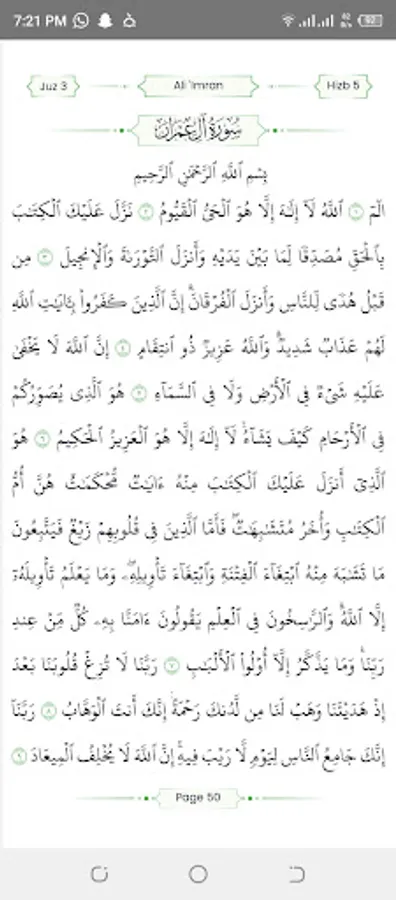 7:21 PM
92
Juz 3
Ali 'Imran
Hizb 5
سُورَةُ آلِ عِمْرَان
بِسْمِ ٱللَّهِ ٱلرَّحْمَٰنِ ٱلرَّحِيمِ
الٓمٓ ١ ٱللَّهُ لَآ إِلَٰهَ إِلَّا هُوَ ٱلْحَىُّ ٱلْقَيُّومُ ٢ نَزَّلَ عَلَيْكَ ٱلْكِتَٰبَ
بِٱلْحَقِّ مُصَدِّقًا لِّمَا بَيْنَ يَدَيْهِ وَأَنزَلَ ٱلتَّوْرَىٰةَ وَٱلْإِنجِيلَ ٣ مِن
قَبْلُ هُدًى لِّلنَّاسِ وَأَنزَلَ ٱلْفُرْقَانَ ۗ إِنَّ ٱلَّذِينَ كَفَرُوا۟ بِـَٔايَٰتِ ٱللَّهِ
لَهُمْ عَذَابٌ شَدِيدٌ ۗ وَٱللَّهُ عَزِيزٌ ذُو ٱنتِقَامٍ ٤ إِنَّ ٱللَّهَ لَا يَخْفَىٰ
عَلَيْهِ شَىْءٌ فِى ٱلْأَرْضِ وَلَا فِى ٱلسَّمَآءِ ٥ هُوَ ٱلَّذِى يُصَوِّرُكُمْ
فِى ٱلْأَرْحَامِ كَيْفَ يَشَآءُ ۚ لَآ إِلَٰهَ إِلَّا هُوَ ٱلْعَزِيزُ ٱلْحَكِيمُ ٦ هُوَ
ٱلَّذِىٓ أَنزَلَ عَلَيْكَ ٱلْكِتَٰبَ مِنْهُ ءَايَٰتٌ مُّحْكَمَٰتٌ هُنَّ أُمُّ
ٱلْكِتَٰبِ وَأُخَرُ مُتَشَٰبِهَٰتٌ ۖ فَأَمَّا ٱلَّذِينَ فِى قُلُوبِهِمْ زَيْغٌ فَيَتَّبِعُونَ
مَا تَشَٰبَهَ مِنْهُ ٱبْتِغَآءَ ٱلْفِتْنَةِ وَٱبْتِغَآءَ تَأْوِيلِهِۦ ۗ وَمَا يَعْلَمُ تَأْوِيلَهُۥٓ
إِلَّا ٱللَّهُ ۗ وَٱلرَّٰسِخُونَ فِى ٱلْعِلْمِ يَقُولُونَ ءَامَنَّا بِهِۦ كُلٌّ مِّنْ عِندِ
رَبِّنَا ۗ وَمَا يَذَّكَّرُ إِلَّآ أُو۟لُوا۟ ٱلْأَلْبَٰبِ ٧ رَبَّنَا لَا تُزِغْ قُلُوبَنَا بَعْدَ
إِذْ هَدَيْتَنَا وَهَبْ لَنَا مِن لَّدُنكَ رَحْمَةً ۚ إِنَّكَ أَنتَ ٱلْوَهَّابُ ٨ رَبَّنَآ
إِنَّكَ جَامِعُ ٱلنَّاسِ لِيَوْمٍ لَّا رَيْبَ فِيهِ ۚ إِنَّ ٱللَّهَ لَا يُخْلِفُ ٱلْمِيعَادَ ٩
Page 50